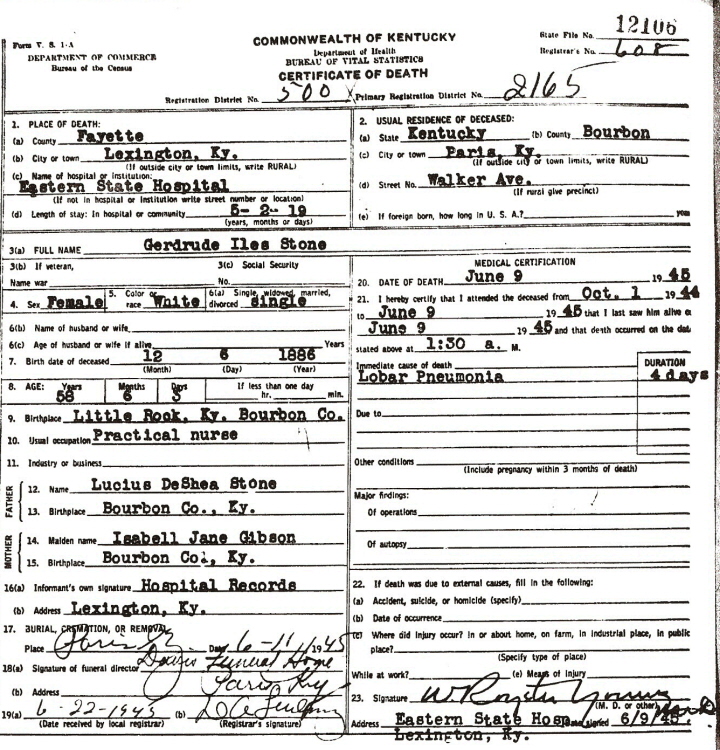 12106
Form V. S. 1-A
DEPARTMENT OF COMMERCE
Bureau of the Census
COMMONWEALTH OF KENTUCKY
Department of Health
BUREAU OF VITAL STATISTICS
CERTIFICATE OF DEATH
State File No.
Registrar's No. 608
Registration District No. 500 Primary Registration District No. 2165
1. PLACE OF DEATH:
(a) County Fayette
(b) City or town Lexington, Ky.
(If outside city or town limits, write RURAL)
(c) Name of hospital or institution:
Eastern State Hospital
(If not in hospital or institution write street number or location)
(d) Length of stay: In hospital or community 5- 2- 19
(years, months or days)
2. USUAL RESIDENCE OF DECEASED:
(a) State Kentucky (b) County Bourbon
(c) City or town Paris, Ky.
(If outside city or town limits, write RURAL)
(d) Street No. Walker Ave.
(If rural give precinct)
(e) If foreign born, how long in U. S. A.? years
3(a) FULL NAME Gerdrude Iles Stone
3(b) If veteran,
Name war
3(c) Social Security
No.
4. Sex Female 5. Color or race White 6(a) Single, widowed, married, divorced single
6(b) Name of husband or wife
6(c) Age of husband or wife if alive Years
7. Birth date of deceased 12 6 1886
(Month) (Day) (Year)
8. AGE: Years 58 Months 6 Days 3 If less than one day hr. min.
9. Birthplace Little Rock, Ky. Bourbon Co.
10. Usual occupation Practical nurse
11. Industry or business
FATHER
12. Name Lucius DeShea Stone
13. Birthplace Bourbon Co., Ky.
MOTHER
14. Maiden name Isabell Jane Gibson
15. Birthplace Bourbon Co., Ky.
16(a) Informant's own signature Hospital Records
(b) Address Lexington, Ky.
17. BURIAL, CREMATION, OR REMOVAL
Place Paris Ky Date 6-11 1945
18(a) Signature of funeral director Davis Funeral Home
(b) Address Paris Ky
19(a) 6-22-1945 (b)
(Date received by local registrar) (Registrar's signature)
MEDICAL CERTIFICATION
20. DATE OF DEATH June 9 1945
21. I hereby certify that I attended the deceased from Oct. 1 1944
to June 9 1945 that I last saw him alive o
June 9 1945 and that death occurred on the dat
stated above at 1:30 a. M.
Immediate cause of death DURATION
Lobar Pneumonia 4 days
Due to
Other conditions
(Include pregnancy within 3 months of death)
Major findings:
Of operations
Of autopsy
22. If death was due to external causes, fill in the following:
(a) Accident, suicide, or homicide (specify)
(b) Date of occurrence
(c) Where did injury occur? In or about home, on farm, in industrial place, in public
place?
(Specify type of place)
While at work? (e) Means of injury
23. Signature W Royster Young
(M. D. or other)
Address Eastern State Hosp. Date signed 6/9/45.
Lexington, Ky.